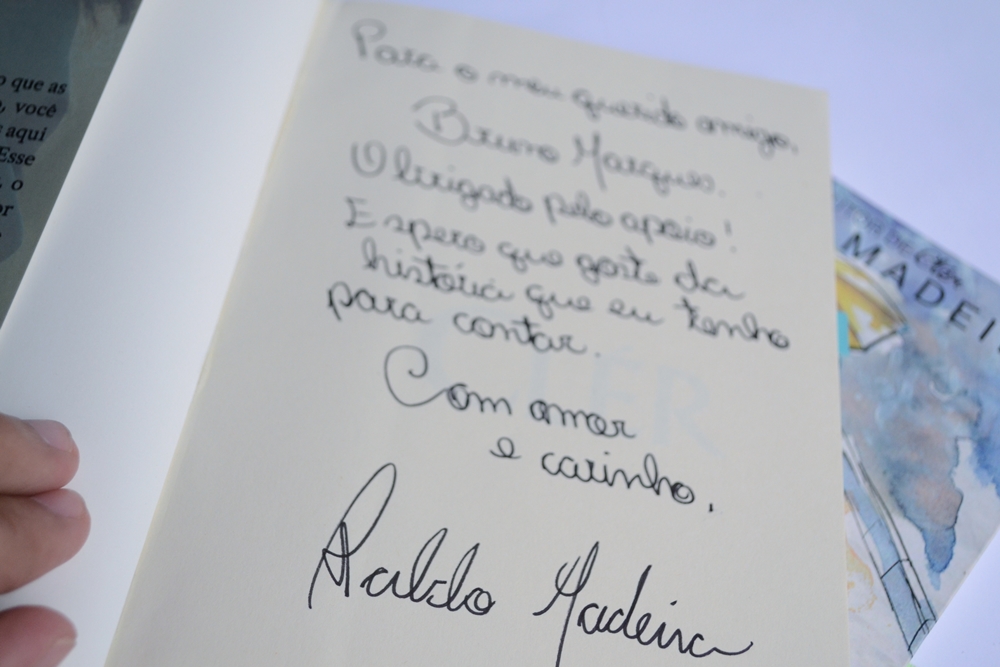 o que as
, você
aqui
Esse
, o
Para o meu querido amigo,
Bruno Marques.
Obrigado pelo apoio!
Espero que goste da
história que eu tenho
para contar.
Com amor
e carinho.
Madeira
ÉR
MADEI